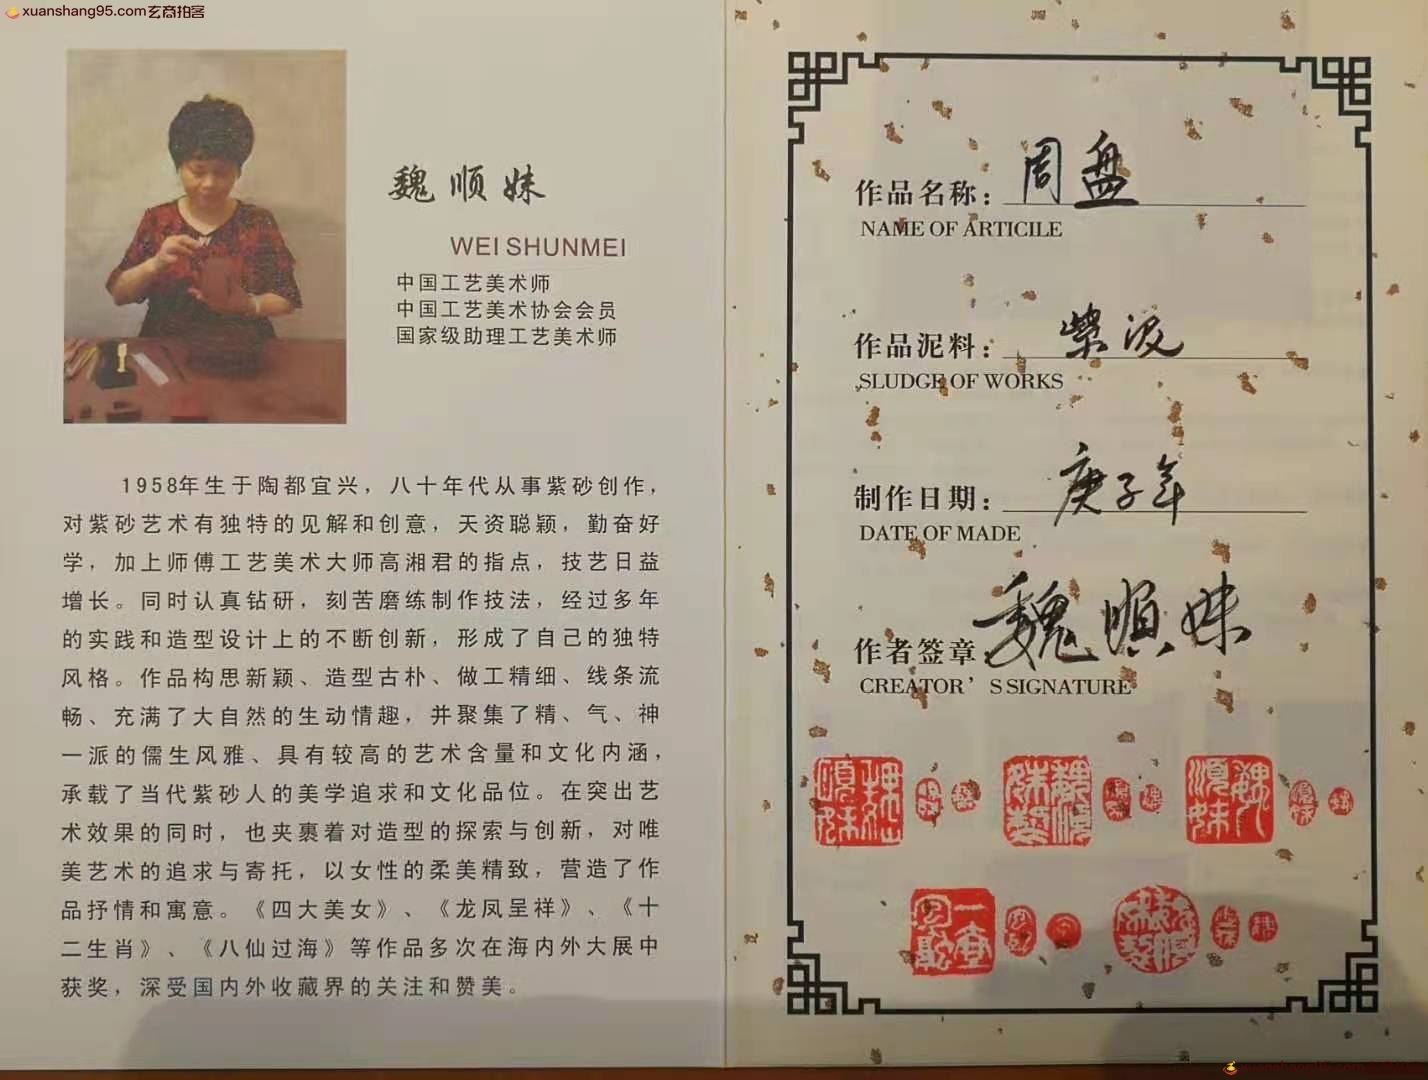 xuanshang95.com玄商拍客
魏顺妹
WEI SHUNMEI
中国工艺美术师
中国工艺美术协会会员
国家级助理工艺美术师
1958年生于陶都宜兴，八十年代从事紫砂创作，
对紫砂艺术有独特的见解和创意，天资聪颖，勤奋好
学，加上师傅工艺美术大师高湘君的指点，技艺日益
增长。同时认真钻研，刻苦磨练制作技法，经过多年
的实践和造型设计上的不断创新，形成了自己的独特
风格。作品构思新颖、造型古朴、做工精细、线条流
畅、充满了大自然的生动情趣，并聚集了精、气、神
一派的儒生风雅、具有较高的艺术含量和文化内涵，
承载了当代紫砂人的美学追求和文化品位。在突出艺
术效果的同时，也夹裹着对造型的探索与创新，对唯
美艺术的追求与寄托，以女性的柔美精致，营造了作
品抒情和寓意。《四大美女》、《龙凤呈祥》、《十
二生肖》、《八仙过海》等作品多次在海内外大展中
获奖，深受国内外收藏界的关注和赞美。
作品名称：周盘
NAME OF ARTICILE
作品泥料：紫泥
SLUDGE OF WORKS
制作日期：庚子年
DATE OF MADE
作者签章 魏順妹
CREATOR'S SIGNATURE